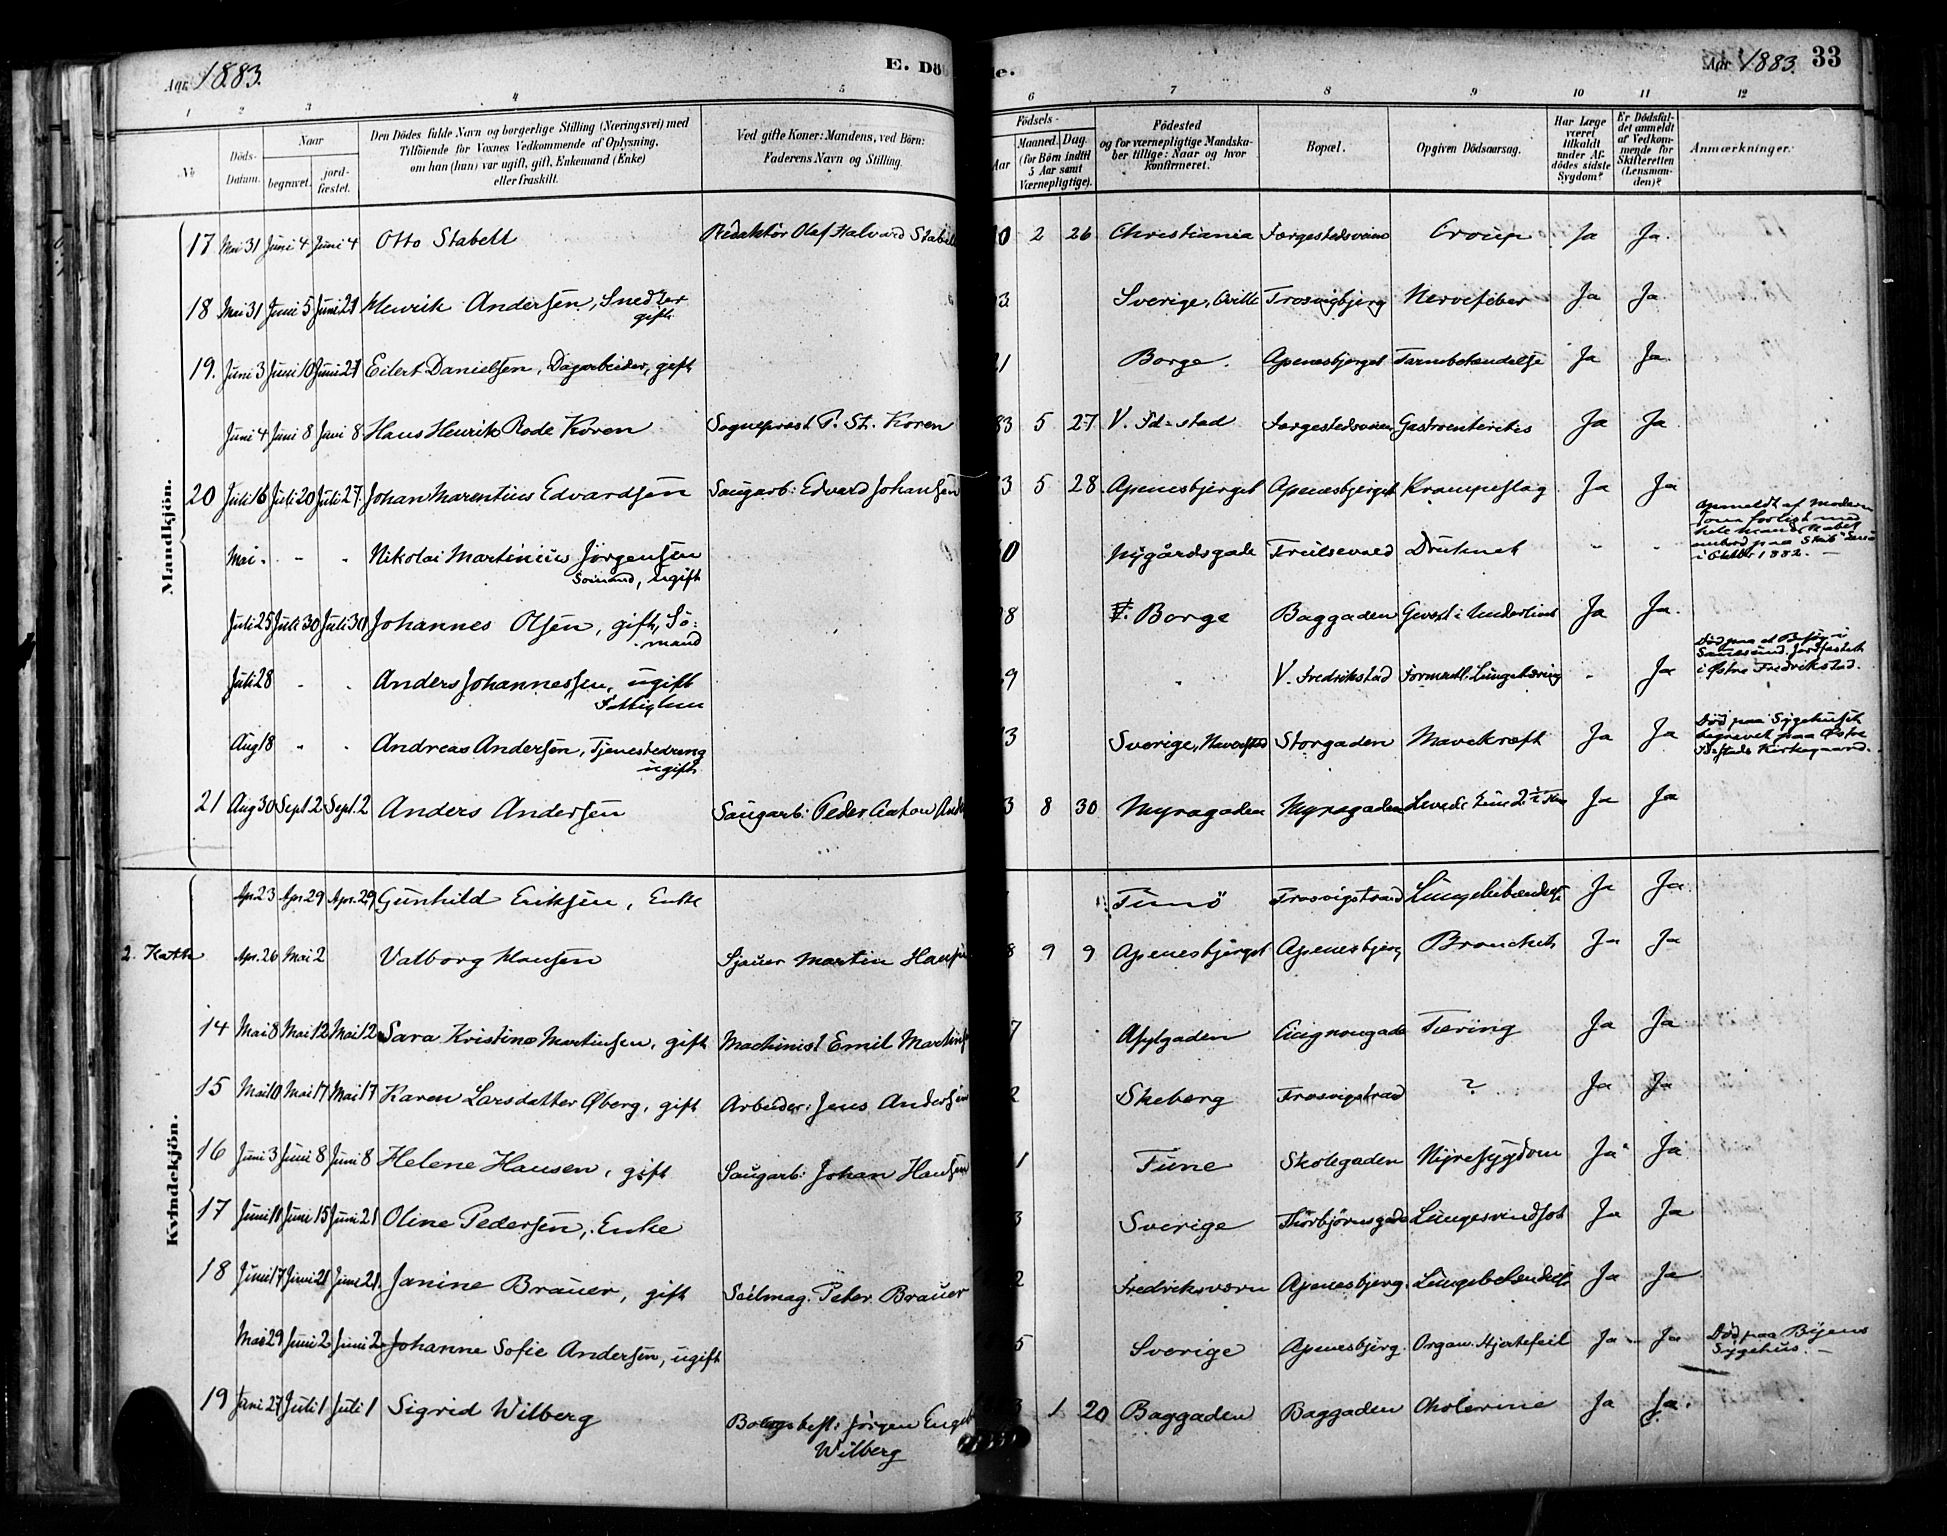 Aar 1883.
E. Dö
de.
Aar 1883.
33
1 2 3 4 5 6 7 8 9 10 11 12
No.
Döds-Datum.
Naar
begravet.
jord-fæstet.
Den Dödes fulde Navn og borgerlige Stilling (Næringsvei) med
Tilföiende for Voxnes Vedkommende af Oplysning,
om han (hun) var ugift, gift, Enkemand (Enke)
eller fraskilt.
Ved gifte Koner: Mandens, ved Börn:
Faderens Navn og Stilling.
Födsels-
Aar
Maaned. Dag.
(for Börn indtil
5 Aar samt
Værnepligtige).
Födested
og for værnepligtige Mandska-
ber tillige: Naar og hvor
konfirmeret.
Bopæl.
Opgiven Dödsaarsag.
Har Læge
været
tilkaldt
under Af-
dödes sidste
Sygdom?
Er Dödsfal-
det anmeldt
af Vedkom-
mende for
Skifteretten
(Lensman-
den)?
Anmærkninger.
Mandkjön.
17 Mai 31 Juni 4 Juni 4 Otto Stabell Redaktör Olaf Halvard Stabell 0 2 26 Christiania Færgestedsveien Croup Ja Ja.
18 Mai 31 Juni 5 Juni 21 Henrik Andersen, Snedker 3 Sverige, Qville Trosvigbjerg Nervefeber Ja Ja.
gift
19. Juni 3 Juni 10 Juni 21 Eilert Danielsen, Dagarbeider, gift 1 Borge. Apenesbjerget Tarmbetændelse Ja Ja.
Juni 4 Juni 8 Juni 8 Hans Henrik Rode Koren Sogneprest P. St. Koren 83 5 27 V. Fd-stad Færgestedsveien Gastroenterites Ja Ja
20 Juli 16 Juli 20 Juli 27 Johan Marentius Edvardsen Saugarb: Edvard Johansen 3 5 28 Apenesbjerget Apenesbjerget Krampeslag Ja Ja
Mai. - - Nikolai Martinius Jörgensen 0 Nygårdsgade Druknet - - Anmeldt af Moderen
Sömand, ugift i Oktbr 1882. —
Juli 25 Juli 30 Juli 30 Johannes Olsen, gift, Sö- 8 Borge Baggaden Gevext i Underlivet Ja Ja.
mand
Juli 28 - - Anders Johannessen, ugift 9 - V. Fredrikstad Formentl. Lungetæring - Ja Död paa et Besög i Sannesund. Jordfæstet
Fattiglem i Østre Fredrikstad.
Aug 18 - - Andreas Andersen, Tjenestedreng 3 Sverige, Storgaden Mavekræft Ja Ja Död paa Sygehuset
ugift begravet paa Østre Fr-stads Kirkegaard.
21 Aug 30 Sept. 2 Sept. 2 Anders Andersen Saugarb: Peder Anton Ander 3 8 30 Myragaden Myragaden Levede kun 2½ Ja Ja
Kvindekjön.
Apr. 23 Apr. 29 Apr. 29 Gunhild Eriksen, Enke Timö Trosvigstrand Lungebetændelse Ja Ja.
2. Kath Apr. 26 Mai 2 Valborg Hansen Sjauer Martin Hansen 8 9 9 Apenesbjerget Apenesbjerg Bronchit Ja Ja
14 Mai 8 Mai 12 Mai 12 Sara Kristine Martinsen, gift Machinist Emil Martins 7 Asylgaden Cicignongade Tæring Ja Ja
15 Mai 10 Mai 17 Mai 17 Karen Larsdatter Øberg, gift Arbeider: Jens Andersen 2 Skeberg Trosvigstrand ? Ja Ja
16 Juni 3 Juni 8 Juni 8 Helene Hansen, gift Saugarb: Johan Hansen 1 Tune Skolegaden Nyresygdom Ja Ja
17 Juni 10 Juni 15 Juni 21 Oline Pedersen, Enke 3 Sverige Thorbjörnsgade Lungesvindsot Ja Ja
18 Juni 17 Juni 21 Juni 21. Janine Brauer, gift Seilmag. Peter Brauer 2 Fredriksværn Apenesbjerg. Lungebetændels. Ja Ja
Mai 29 Juni 2 Juni 2 Johanne Sofie Andersen, ugift 5 Sverige Apenesbjerg. Organ. Hjertefeil Ja - Ja Död paa Byens
Sygehus. —
19 Juni 27 Juli 1 Juli 1 Sigrid Wilberg Jörgen Engeb 3 1 20 Baggaden Baggaden Cholerine Ja Ja.
Wilberg